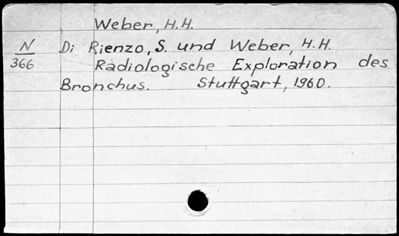 Weber, H.H.
N Di Rienzo, S. und Weber, H.H.
366 Radiologische Exploration des
Bronchus. Stuttgart, 1960.